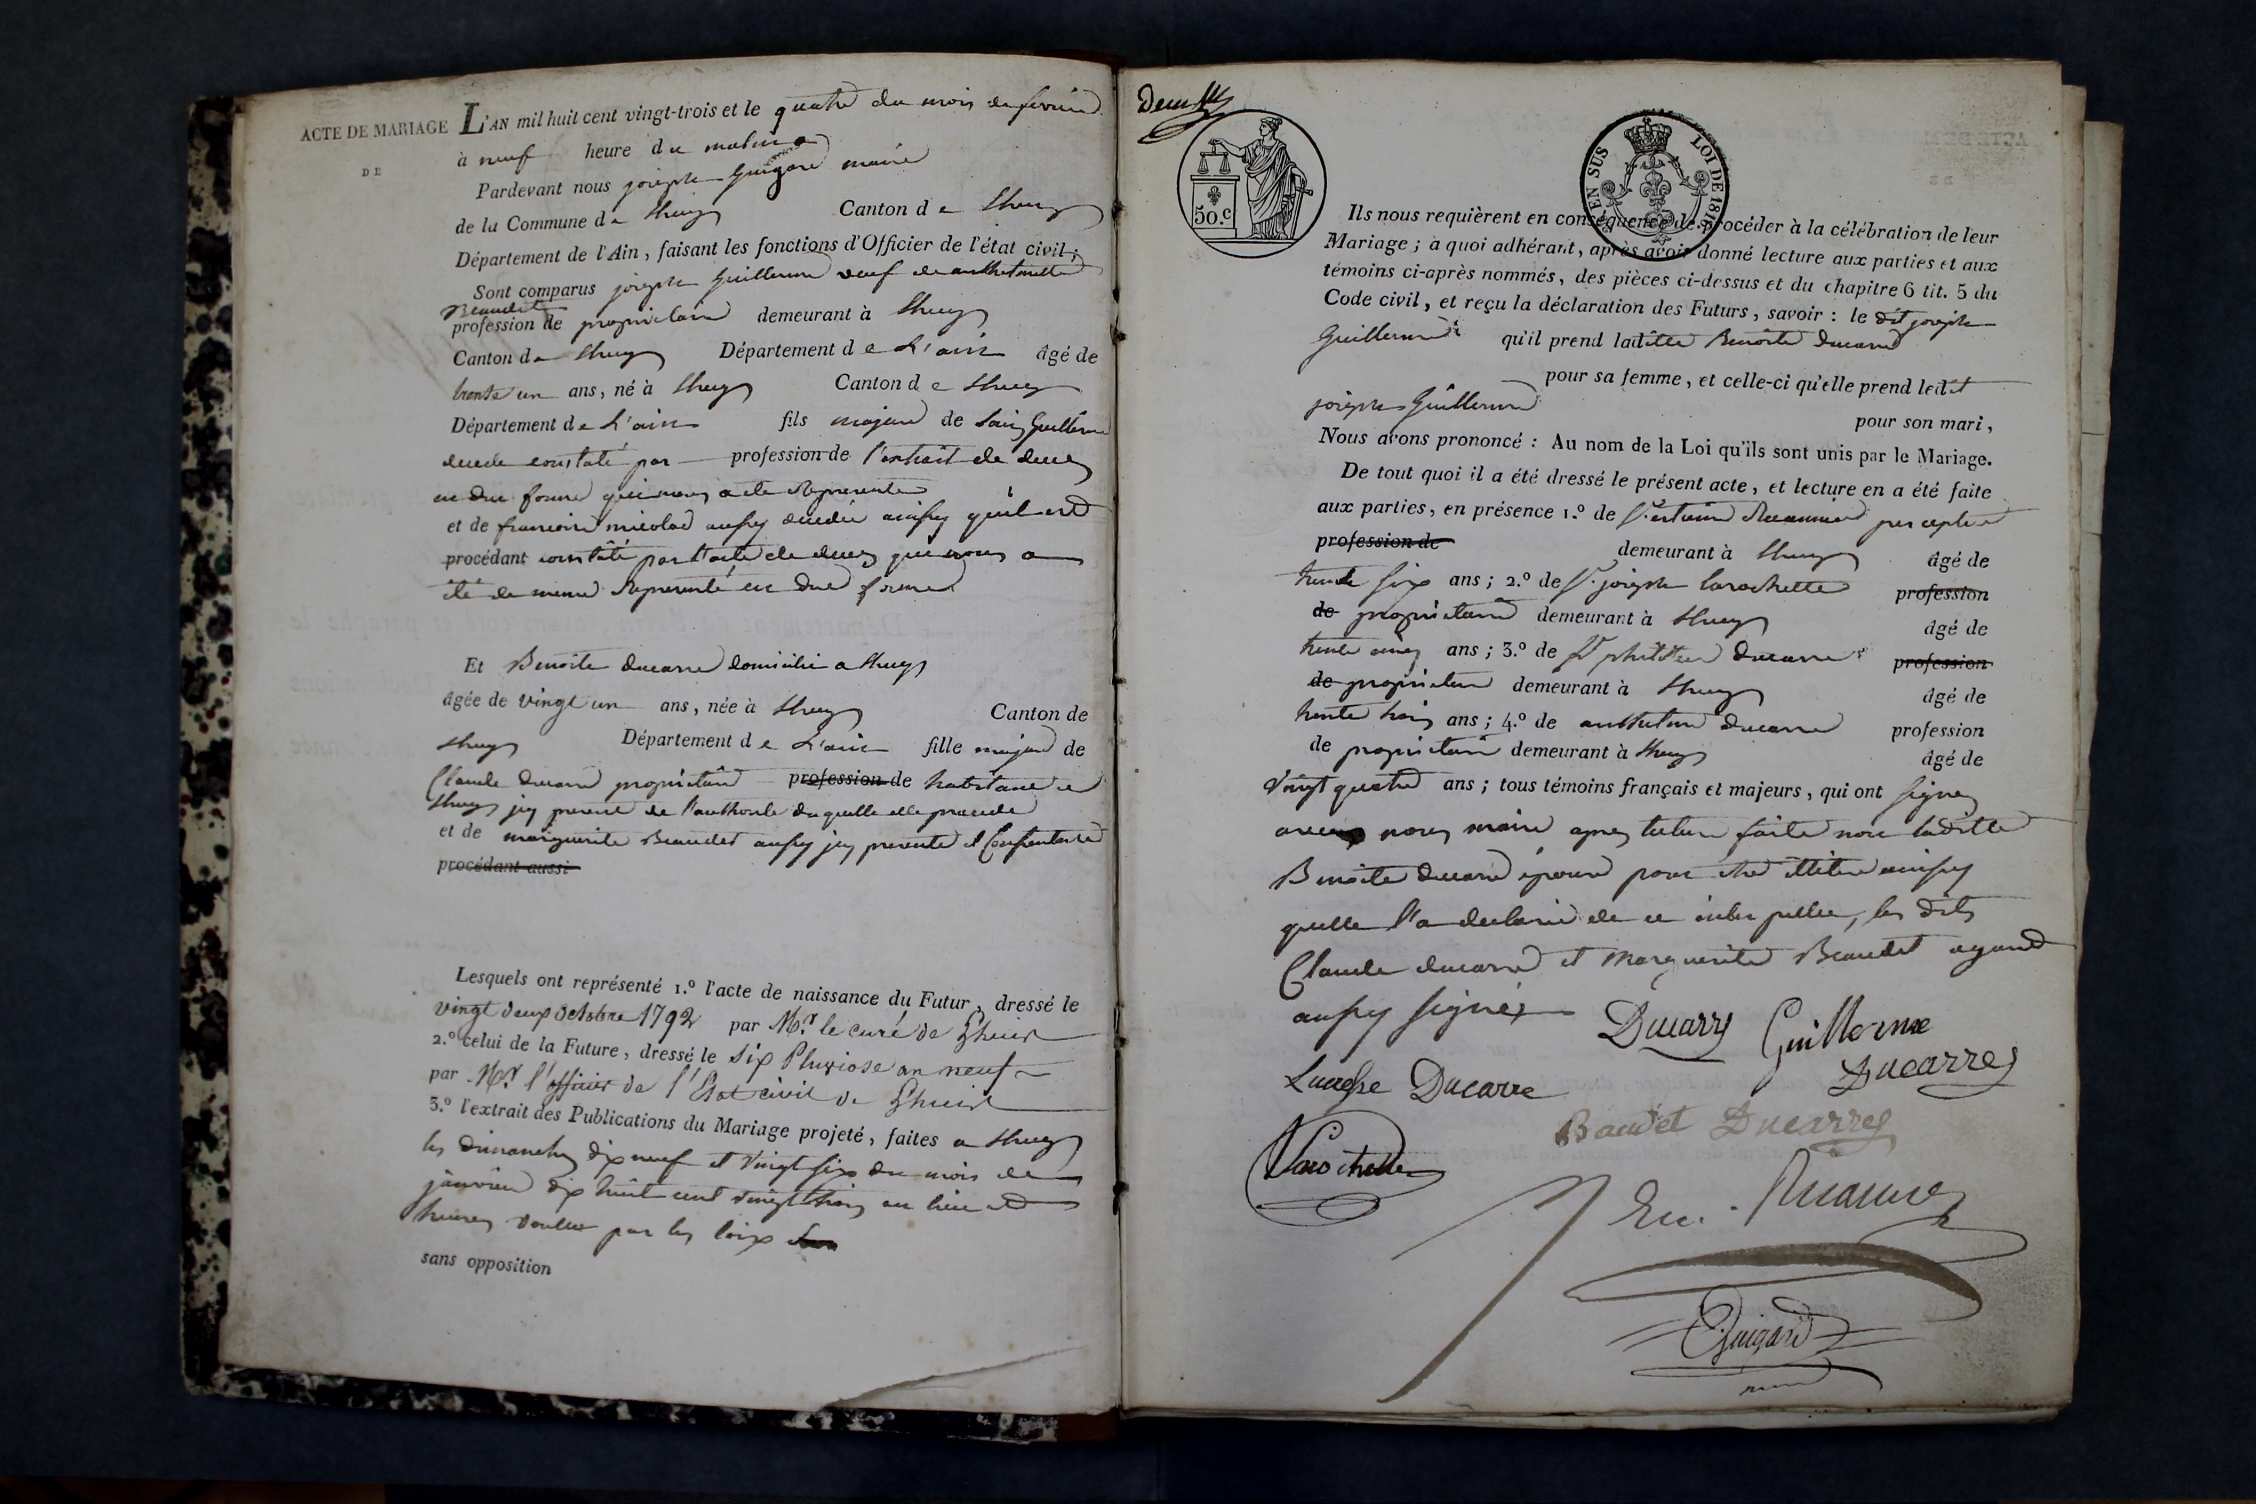 ACTE DE MARIAGE
DE
L'AN mil huit cent vingt-trois et le quatre du mois de fevrier
à neuf heure du matin
Pardevant nous joseph Guigard maire
de la Commune de Lhuys Canton de Lhuys
Département de l'Ain, faisant les fonctions d'Officier de l'état civil;
Sont comparus joseph Guillerme veuf de anthelmette
Beaudet
profession de propriétaire demeurant à Lhuys
Canton de Lhuys Département de L'ain âgé de
trente un ans, né à Lhuys Canton de Lhuys
Département de L'ain fils majeur de Guillerme
decede constaté par profession de l'extrait de deces
en due forme qui nous a été Représenté
et de francoise aussy decedée ainsy qu'il est
procédant constaté par l'acte de deces qui nous a
été de meme Representé en due forme
Et Benoite ducarre domiciliée a Lhuys
âgée de vingt un ans, née à Lhuys Canton de
Lhuys Département de L'ain fille majeure de
Claude ducarre propriétaire profession de habitant a
Lhuys jcy present de l'authorité duquelle elle procede
et de marguerite Beaudet aussy jcy presente et Consentante
procédant aussi
Lesquels ont représenté 1.º l'acte de naissance du Futur, dressé le
vingt deux Octobre 1792 par Mr. le curé de Lhuis
2.º celui de la Future, dressé le six Pluviose an neuf
par Mr. l'officier de l'Etat civil de Lhuis
3.º l'extrait des Publications du Mariage projeté, faites a Lhuys
les dimanches dix neuf et vingt six du mois de
janvier dix huit cent vingt trois au lieu et
heures voulue par les loix
sans opposition
50.c
EN SUS LOI DE 1816
Ils nous requièrent en conséquence de procéder à la célébration de leur
Mariage; à quoi adhérant, après avoir donné lecture aux parties et aux
témoins ci-après nommés, des pièces ci-dessus et du chapitre 6 tit. 5 du
Code civil, et reçu la déclaration des Futurs, savoir: le dit joseph
Guillerme qu'il prend laditte Benoite ducarre
pour sa femme, et celle-ci qu'elle prend ledit
joseph Guillerme
pour son mari,
Nous avons prononcé: Au nom de la Loi qu'ils sont unis par le Mariage.
De tout quoi il a été dressé le présent acte, et lecture en a été faite
aux parties, en présence 1.º de percepteur
profession de demeurant à Lhuys âgé de
trente six ans; 2.º de Sr. joseph larochette profession
de propriétaire demeurant à Lhuys âgé de
trente cinq ans; 3.º de Sr ducarre profession
de propriétaire demeurant à Lhuys âgé de
trente trois ans; 4.º de anthelme ducarre profession
de propriétaire demeurant à Lhuys âgé de
vingt quatre ans; tous témoins français et majeurs, qui ont signes
avec nous maire apres lecture faite non laditte
Benoite ducarre épouse pour etre illitere ainsy
quelle l'a declaré de ce interpellee, les dits
Claude ducarre et marguerite Beaudet ayand
aussy signé
Ducarre Guillerme
Ducarre Ducarre
Baudet Ducarre
Larochette
Guigard